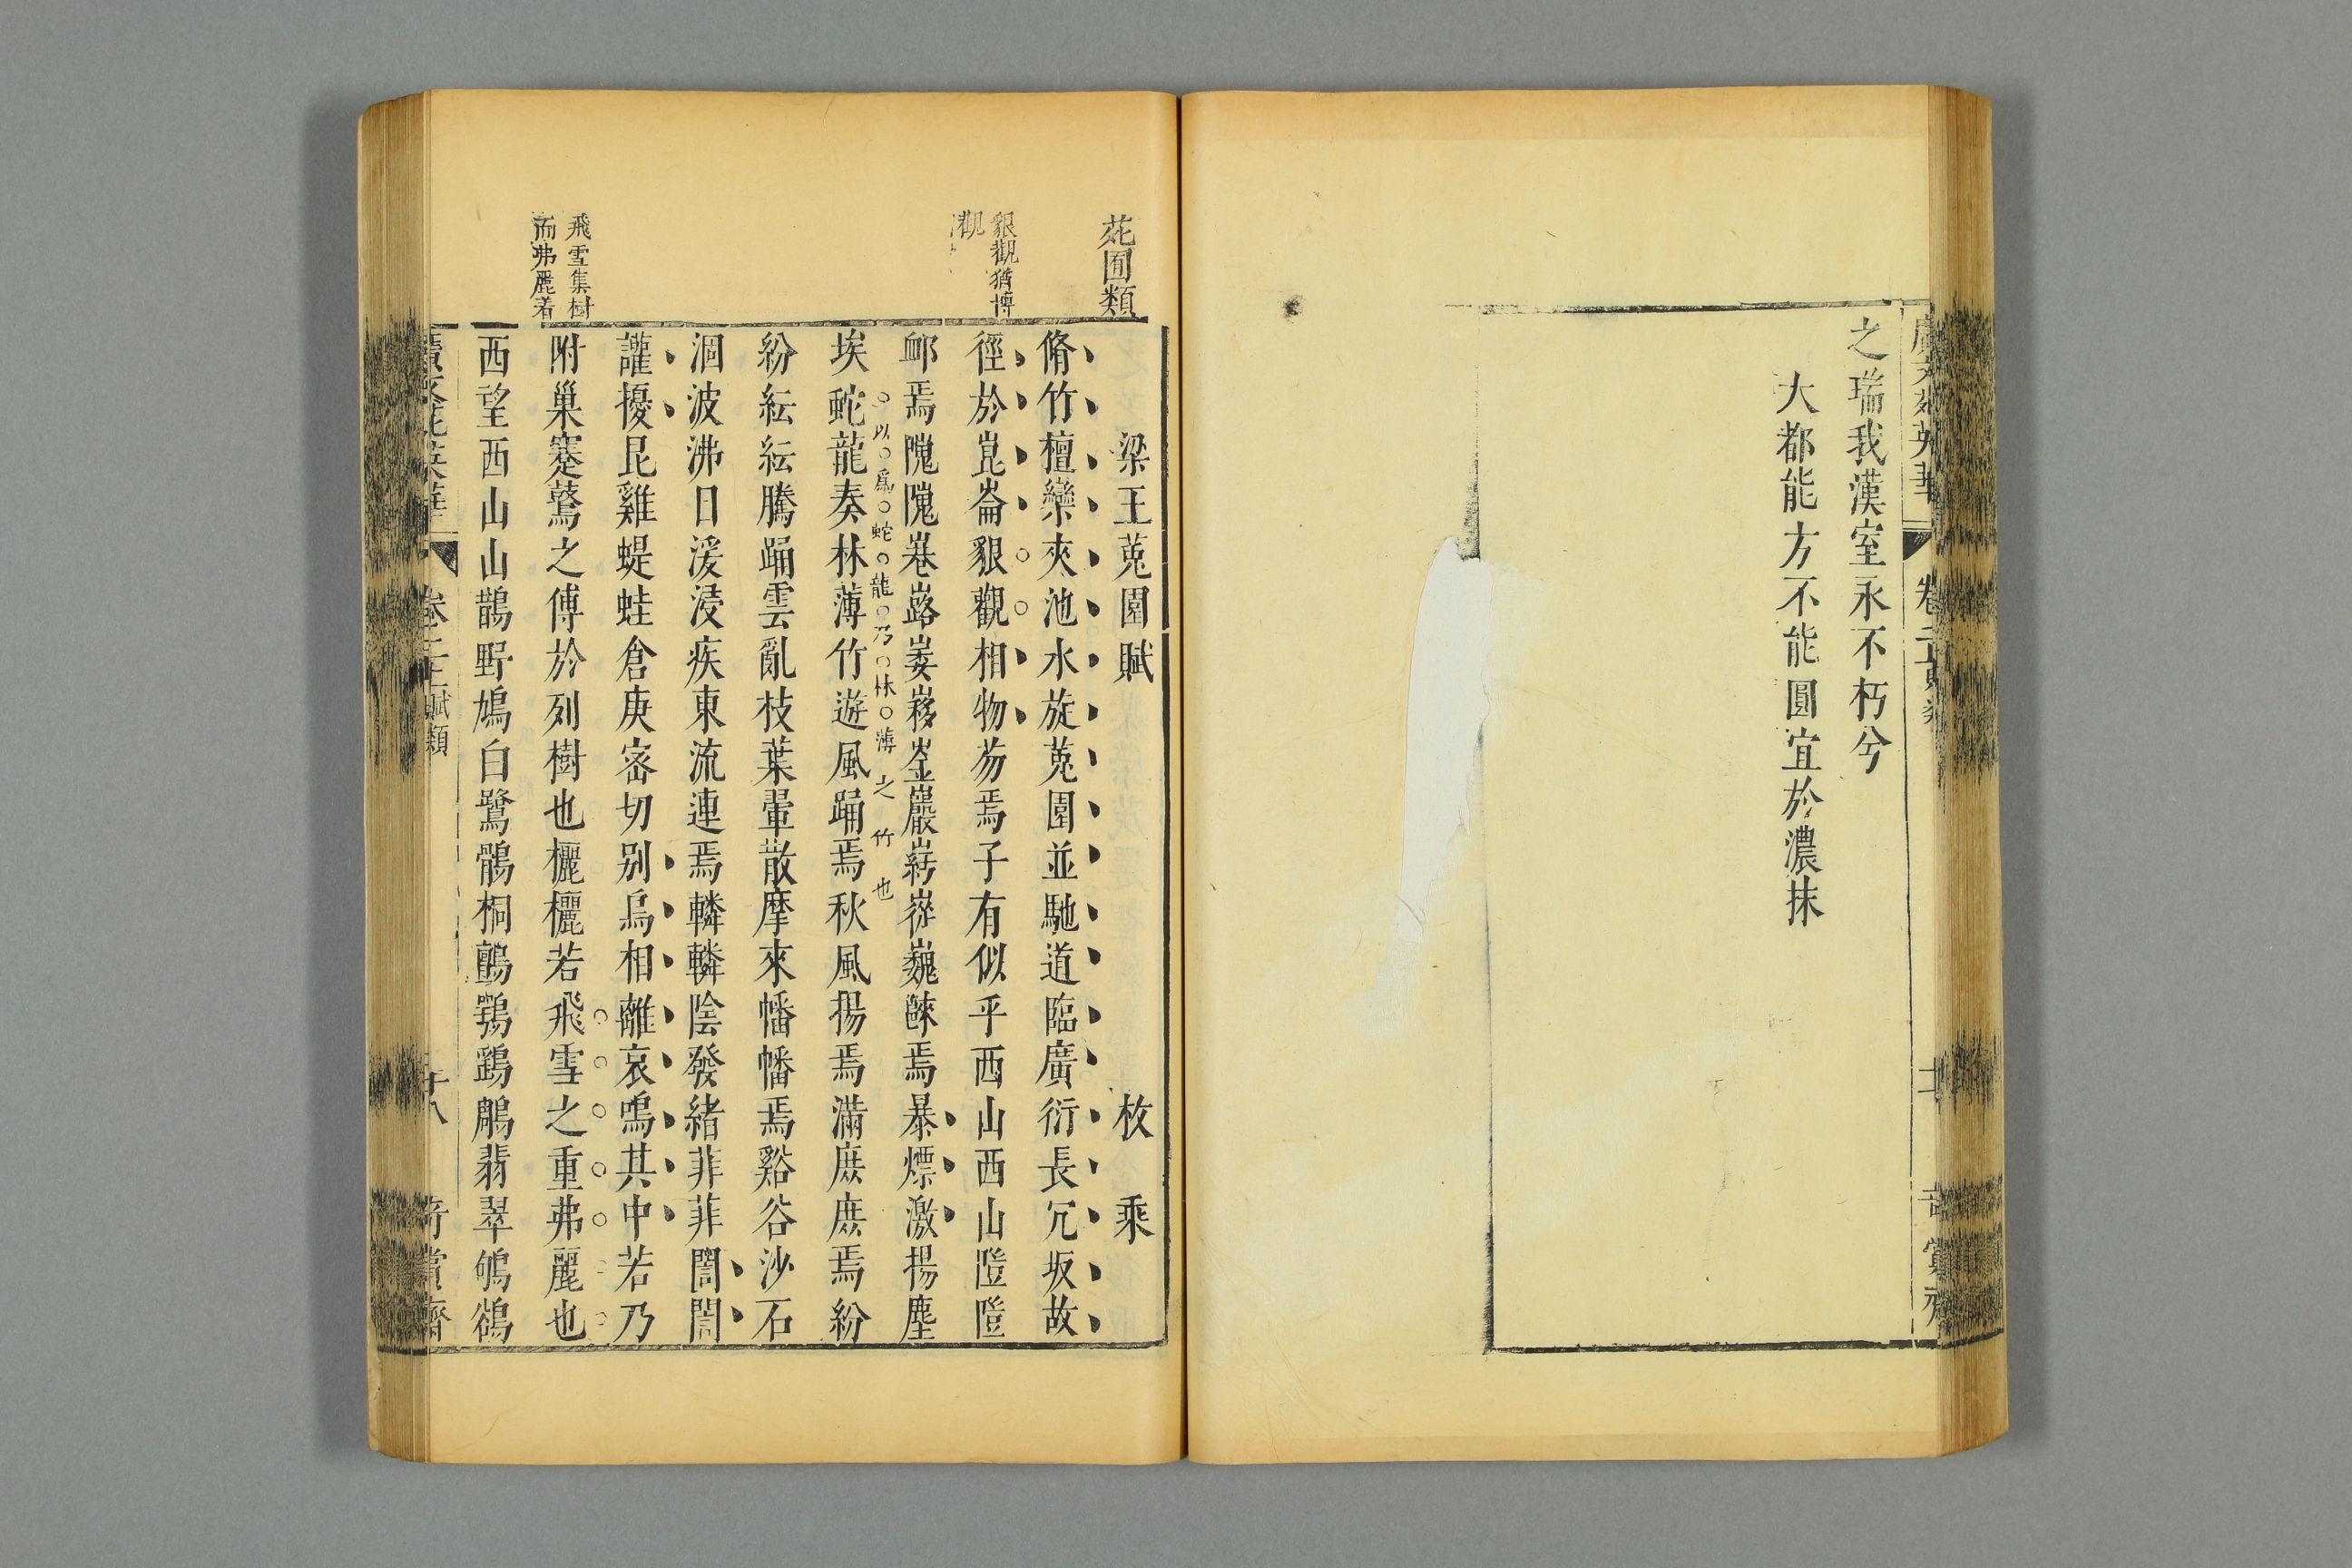 廣文苑英華 卷二 賦類
之瑞我漢室永不朽兮
大都能方不能圓宜於濃抹
苑囿類
梁王菟園賦 枚乘
脩竹檀欒夾池水旋菟園並馳道臨廣衍長冗坂故
貇觀猶博
觀
徑於崑崙貇觀相物芴焉子有似乎西山西山隑隑
卹焉隗隗巷路崣㠢崟巖𡺲巍焉暴熛激揚塵
以爲蛇龍乃林薄之竹也
埃蛇龍奏林薄竹遊風踊焉秋風揚焉滿庶庶焉紛
紛紜紜騰踊雲亂枝葉翬散摩來幡幡焉谿谷沙石
涸波沸日湲浸疾東流連焉轔轔陰發緒菲菲誾誾
讙擾昆雞蝭蛙倉庚密切别鳥相離哀鳴其中若乃
飛雪集樹
而弗麗着
附巢蹇鷔之傅於列樹也欐欐若飛雪之重弗麗也
西望西山山鵲野鳩白鷺鶻桐鸇鶚鷂鵰翡翠鴝鵒
廣文苑英華 卷二 賦類 十八 奇賞齋